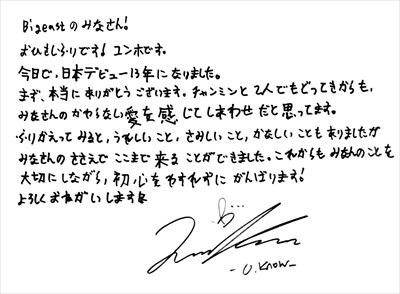 Bigeastのみなさん!
おひさしぶりです! ユンホです。
今日で、日本デビュー13年になりました。
まず、本当にありがとうございます。チャンミンと2人でもどってきからも、
みなさんのかわらない愛を感じてしあわせだと思ってます。
ふりかえってみると、うれしいこと、さみしいこと、かなしいこともありましたが
みなさんのささえでここまで来ることができました。これからもみなんのことを
大切にしながら、初心をわすれずにがんばります!
よろしくおねがいします
-U.Know-